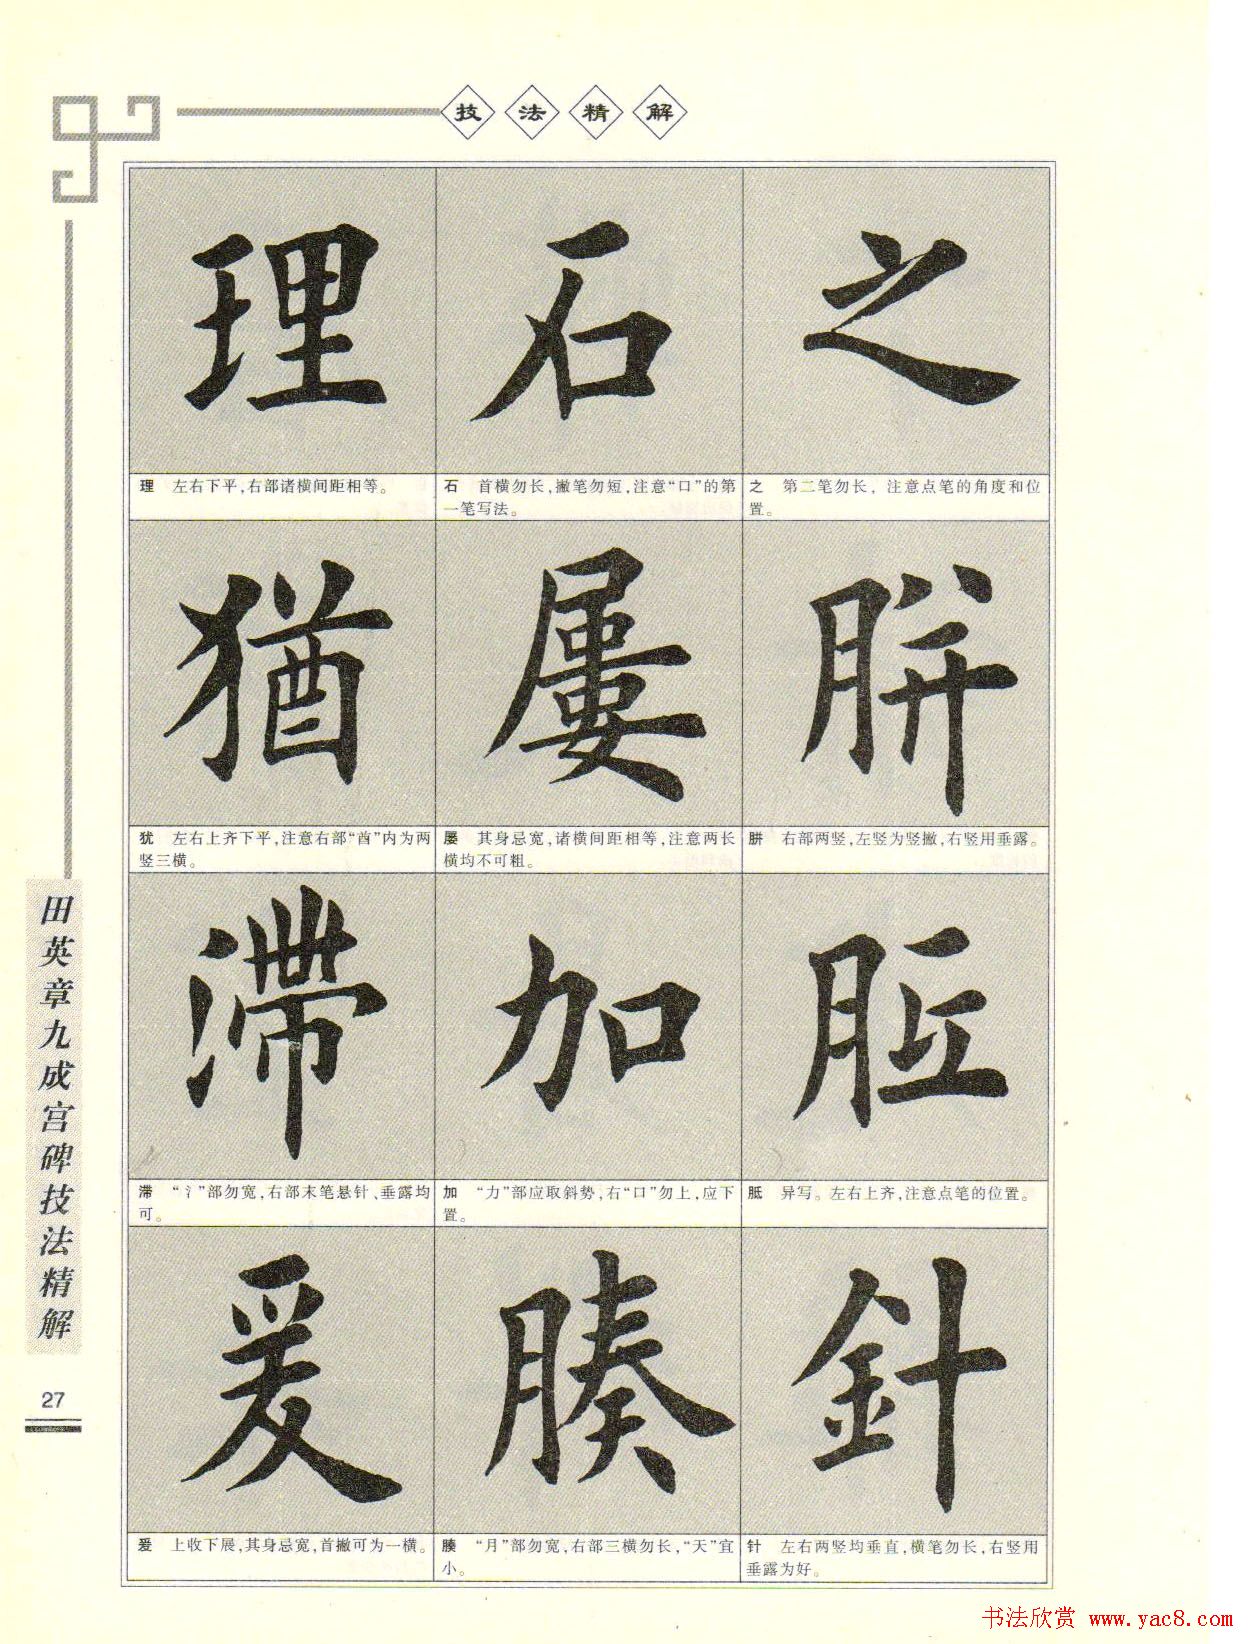 技法精解
理 石 之
理 左右下平,右部诸横间距相等。
石 首横勿长,撇笔勿短,注意“口”的第
一笔写法。
之 第二笔勿长,注意点笔的角度和位
置。
猶 屢 胼
犹 左右上齐下平,注意右部“酋”内为两
竖三横。
屡 其身忌宽,诸横间距相等,注意两长
横均不可粗。
胼 右部两竖,左竖为竖撇,右竖用垂露。
滯 加 胝
滞 “氵”部勿宽,右部末笔悬针、垂露均
可。
加 “力”部应取斜势,右“口”勿上,应下
置。
胝 异写。左右上齐,注意点笔的位置。
爰 腠 針
爰 上收下展,其身忌宽,首撇可为一横。
腠 “月”部勿宽,右部三横勿长,“天”宜
小。
针 左右两竖均垂直,横笔勿长,右竖用
垂露为好。
田英章九成宫碑技法精解
27
书法欣赏 www.yac8.com